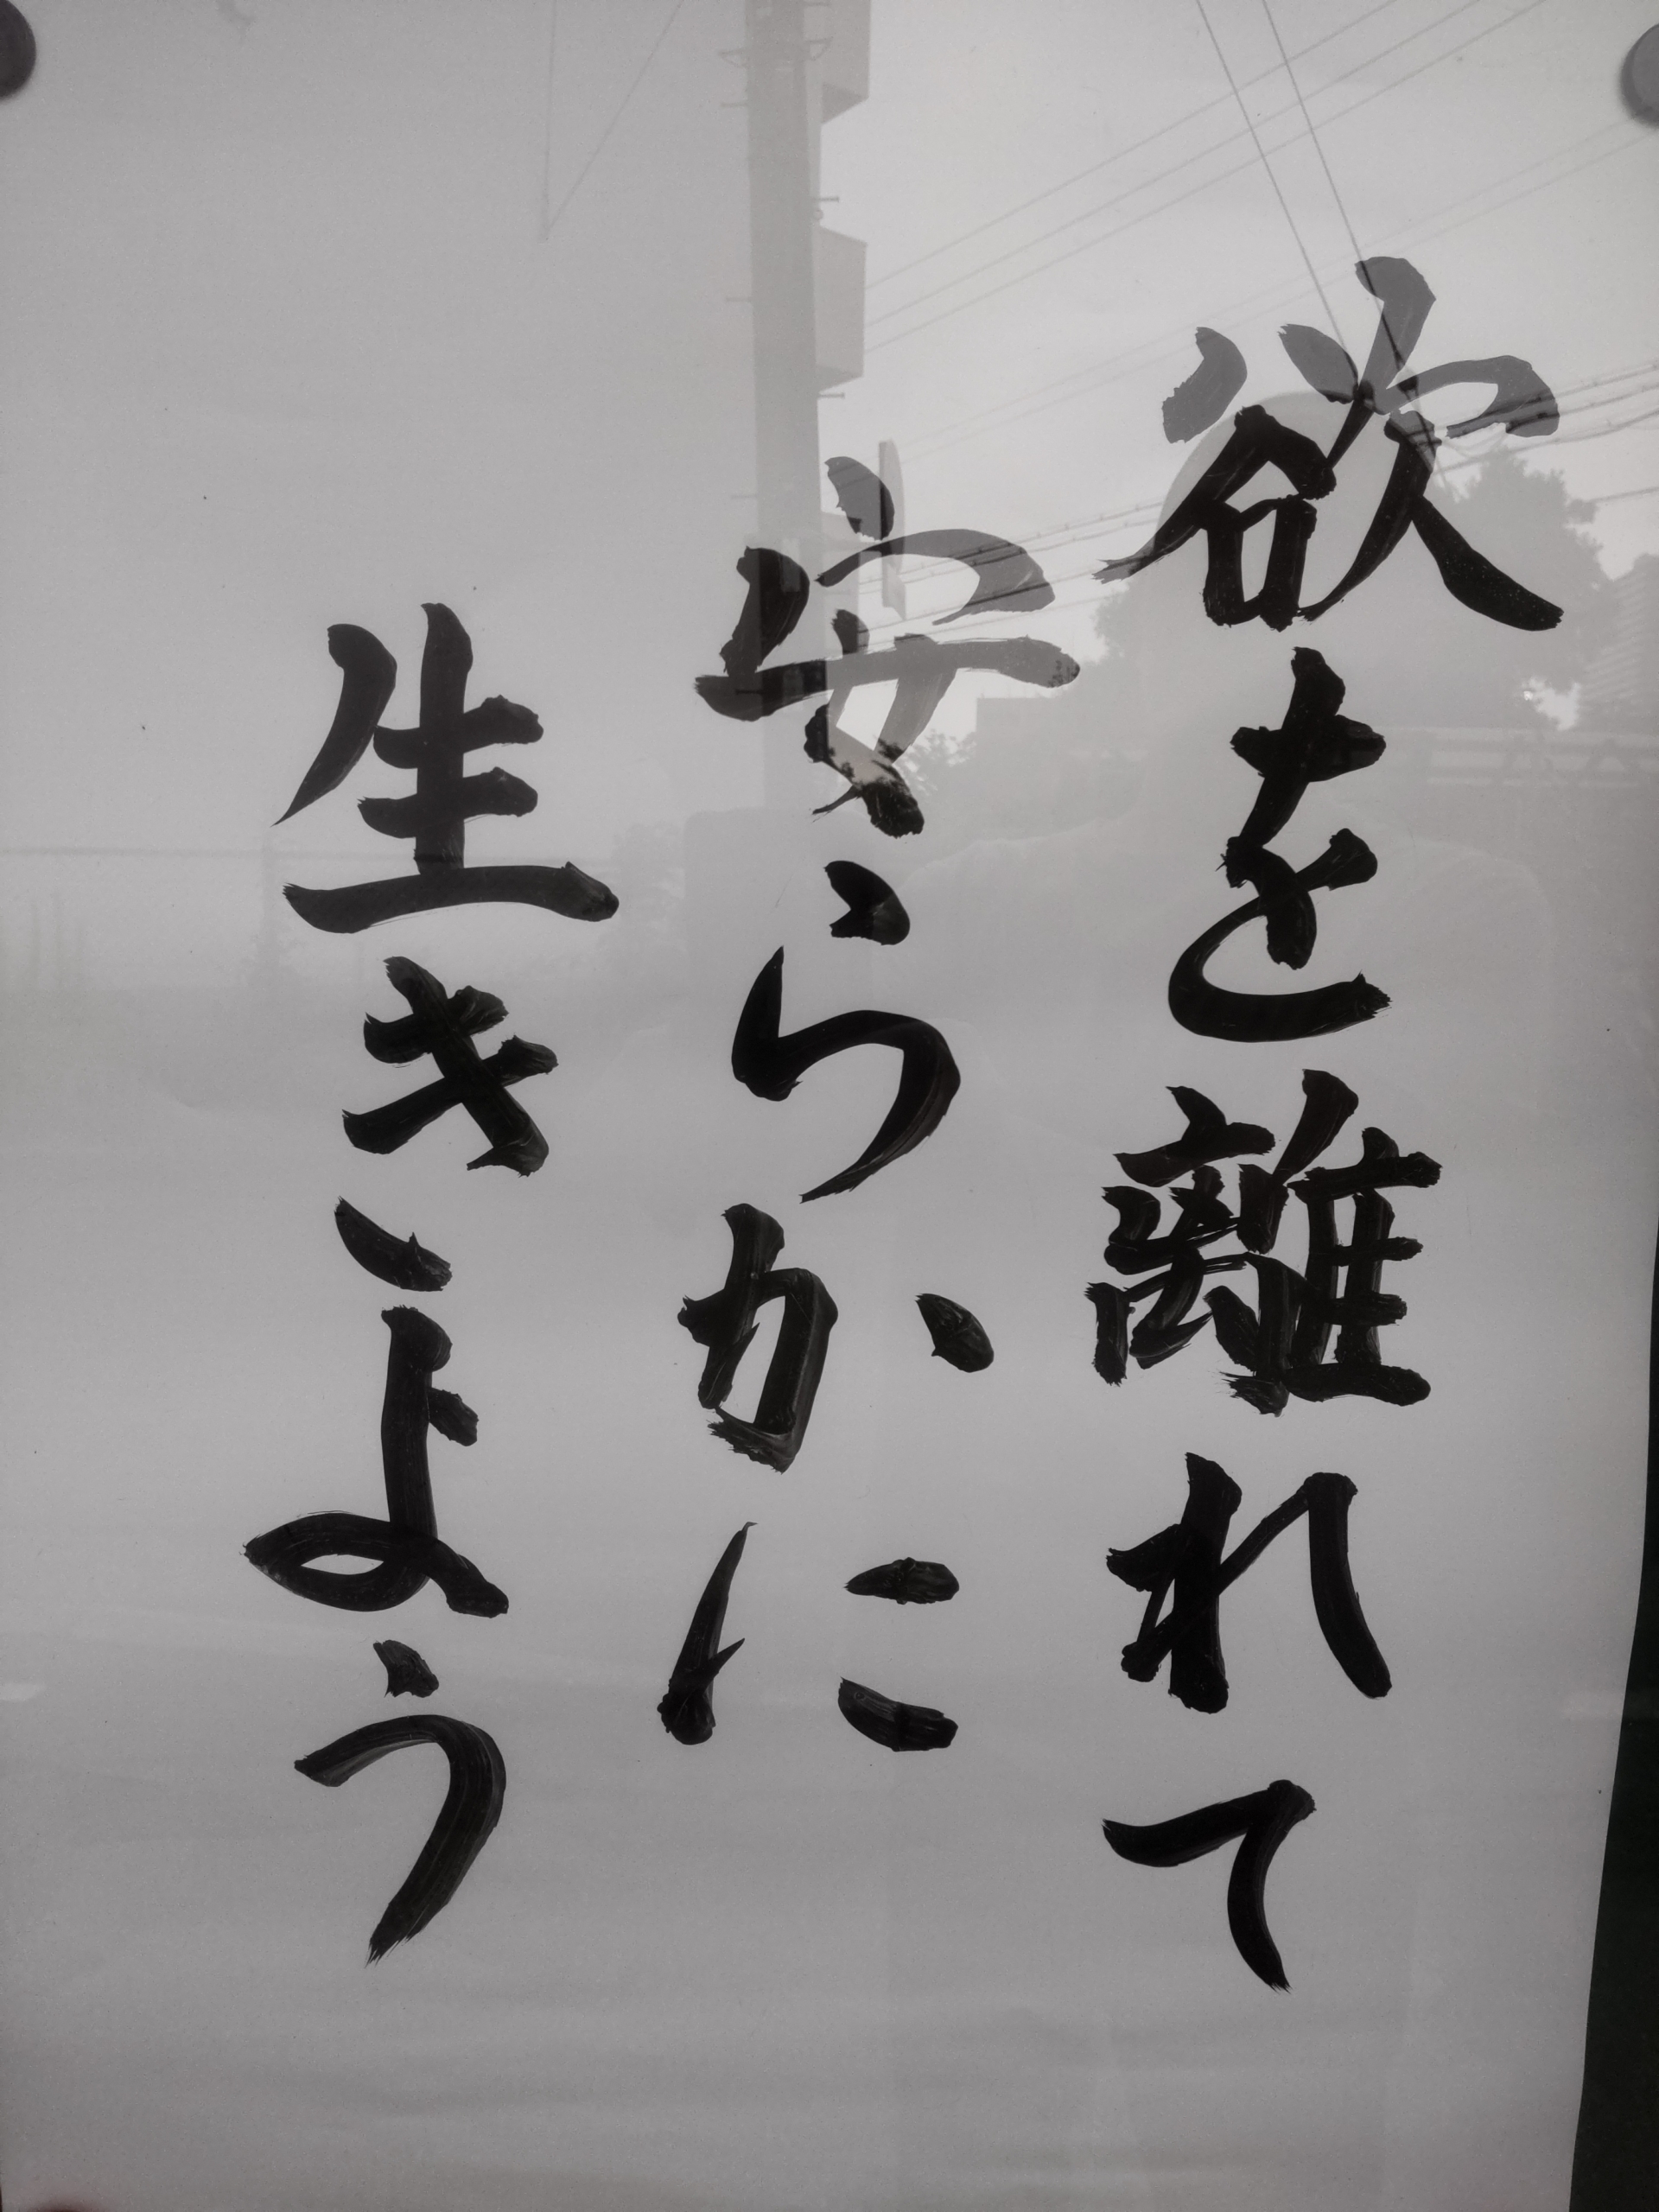 欲を離れて
安らかに
生きよう